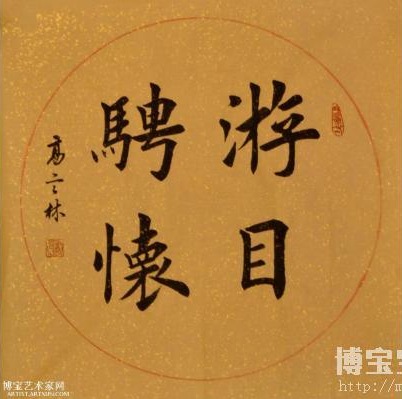 游目
騁懷
博宝艺术家网
ARTIST.ARTXUN.COM
博宝
http://m